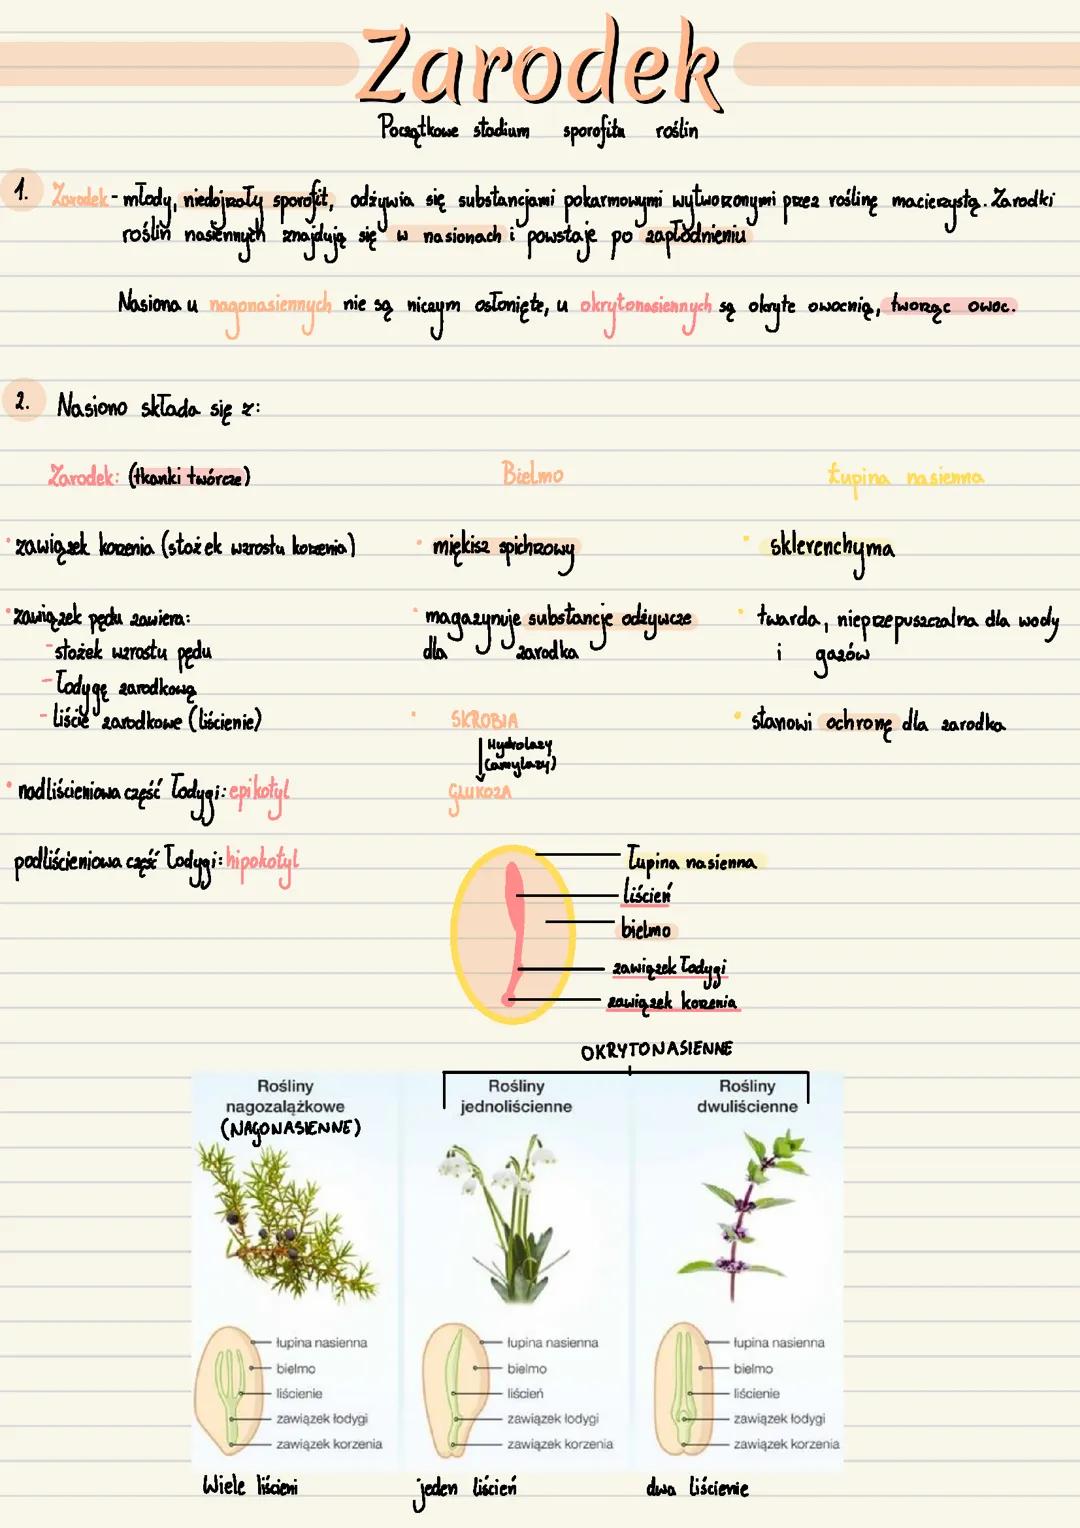 Zarodek
Początkowe stadium sporofitu roślin
1. Zarodek - młody, niedojrzały sporofit, odżywia się substancjami pokarmowymi wytworzonymi przez roślinę macierzystą. Zarodki
roślin nasiennych znajdują się w nasionach i powstaje po zapłodnieniu
Nasiona u nagonasiennych nie są niczym osłonięte, u okrytonasiennych są okryte owocnią, tworząc owoc.
2. Nasiono składa się z:
Zarodek: (tkanki twórcze)
zawiązek korzenia (stożek wzrostu korzenia)
zawiązek pędu zawiera:
- stożek wzrostu pędu
- łodygę zarodkową
- liście zarodkowe (liścienie)
nadliścieniowa część łodygi: epikotyl
podliścieniowa część łodygi: hipokotyl
Bielmo
miękisz spichrzowy
magazynuje substancje odżywcze
dla zarodka
SKROBIA
Hydrolazy
(amylazy)
GLUKOZA
Łupina nasienna
sklerenchyma
twarda, nieprzepuszczalna dla wody
i gazów
stanowi ochronę dla zarodka
Łupina nasienna
liścień
bielmo
zawiązek łodygi
zawiązek korzenia
OKRYTONASIENNE
Rośliny
nagozalążkowe
(NAGONASIENNE)
łupina nasienna
bielmo
liścienie
zawiązek łodygi
zawiązek korzenia
Wiele liścieni
Rośliny
jednoliścienne
łupina nasienna
bielmo
liścień
zawiązek łodygi
zawiązek korzenia
jeden liścień
Rośliny
dwuliścienne
łupina nasienna
bielmo
liścienie
zawiązek łodygi
zawiązek korzenia
dwa liścienie